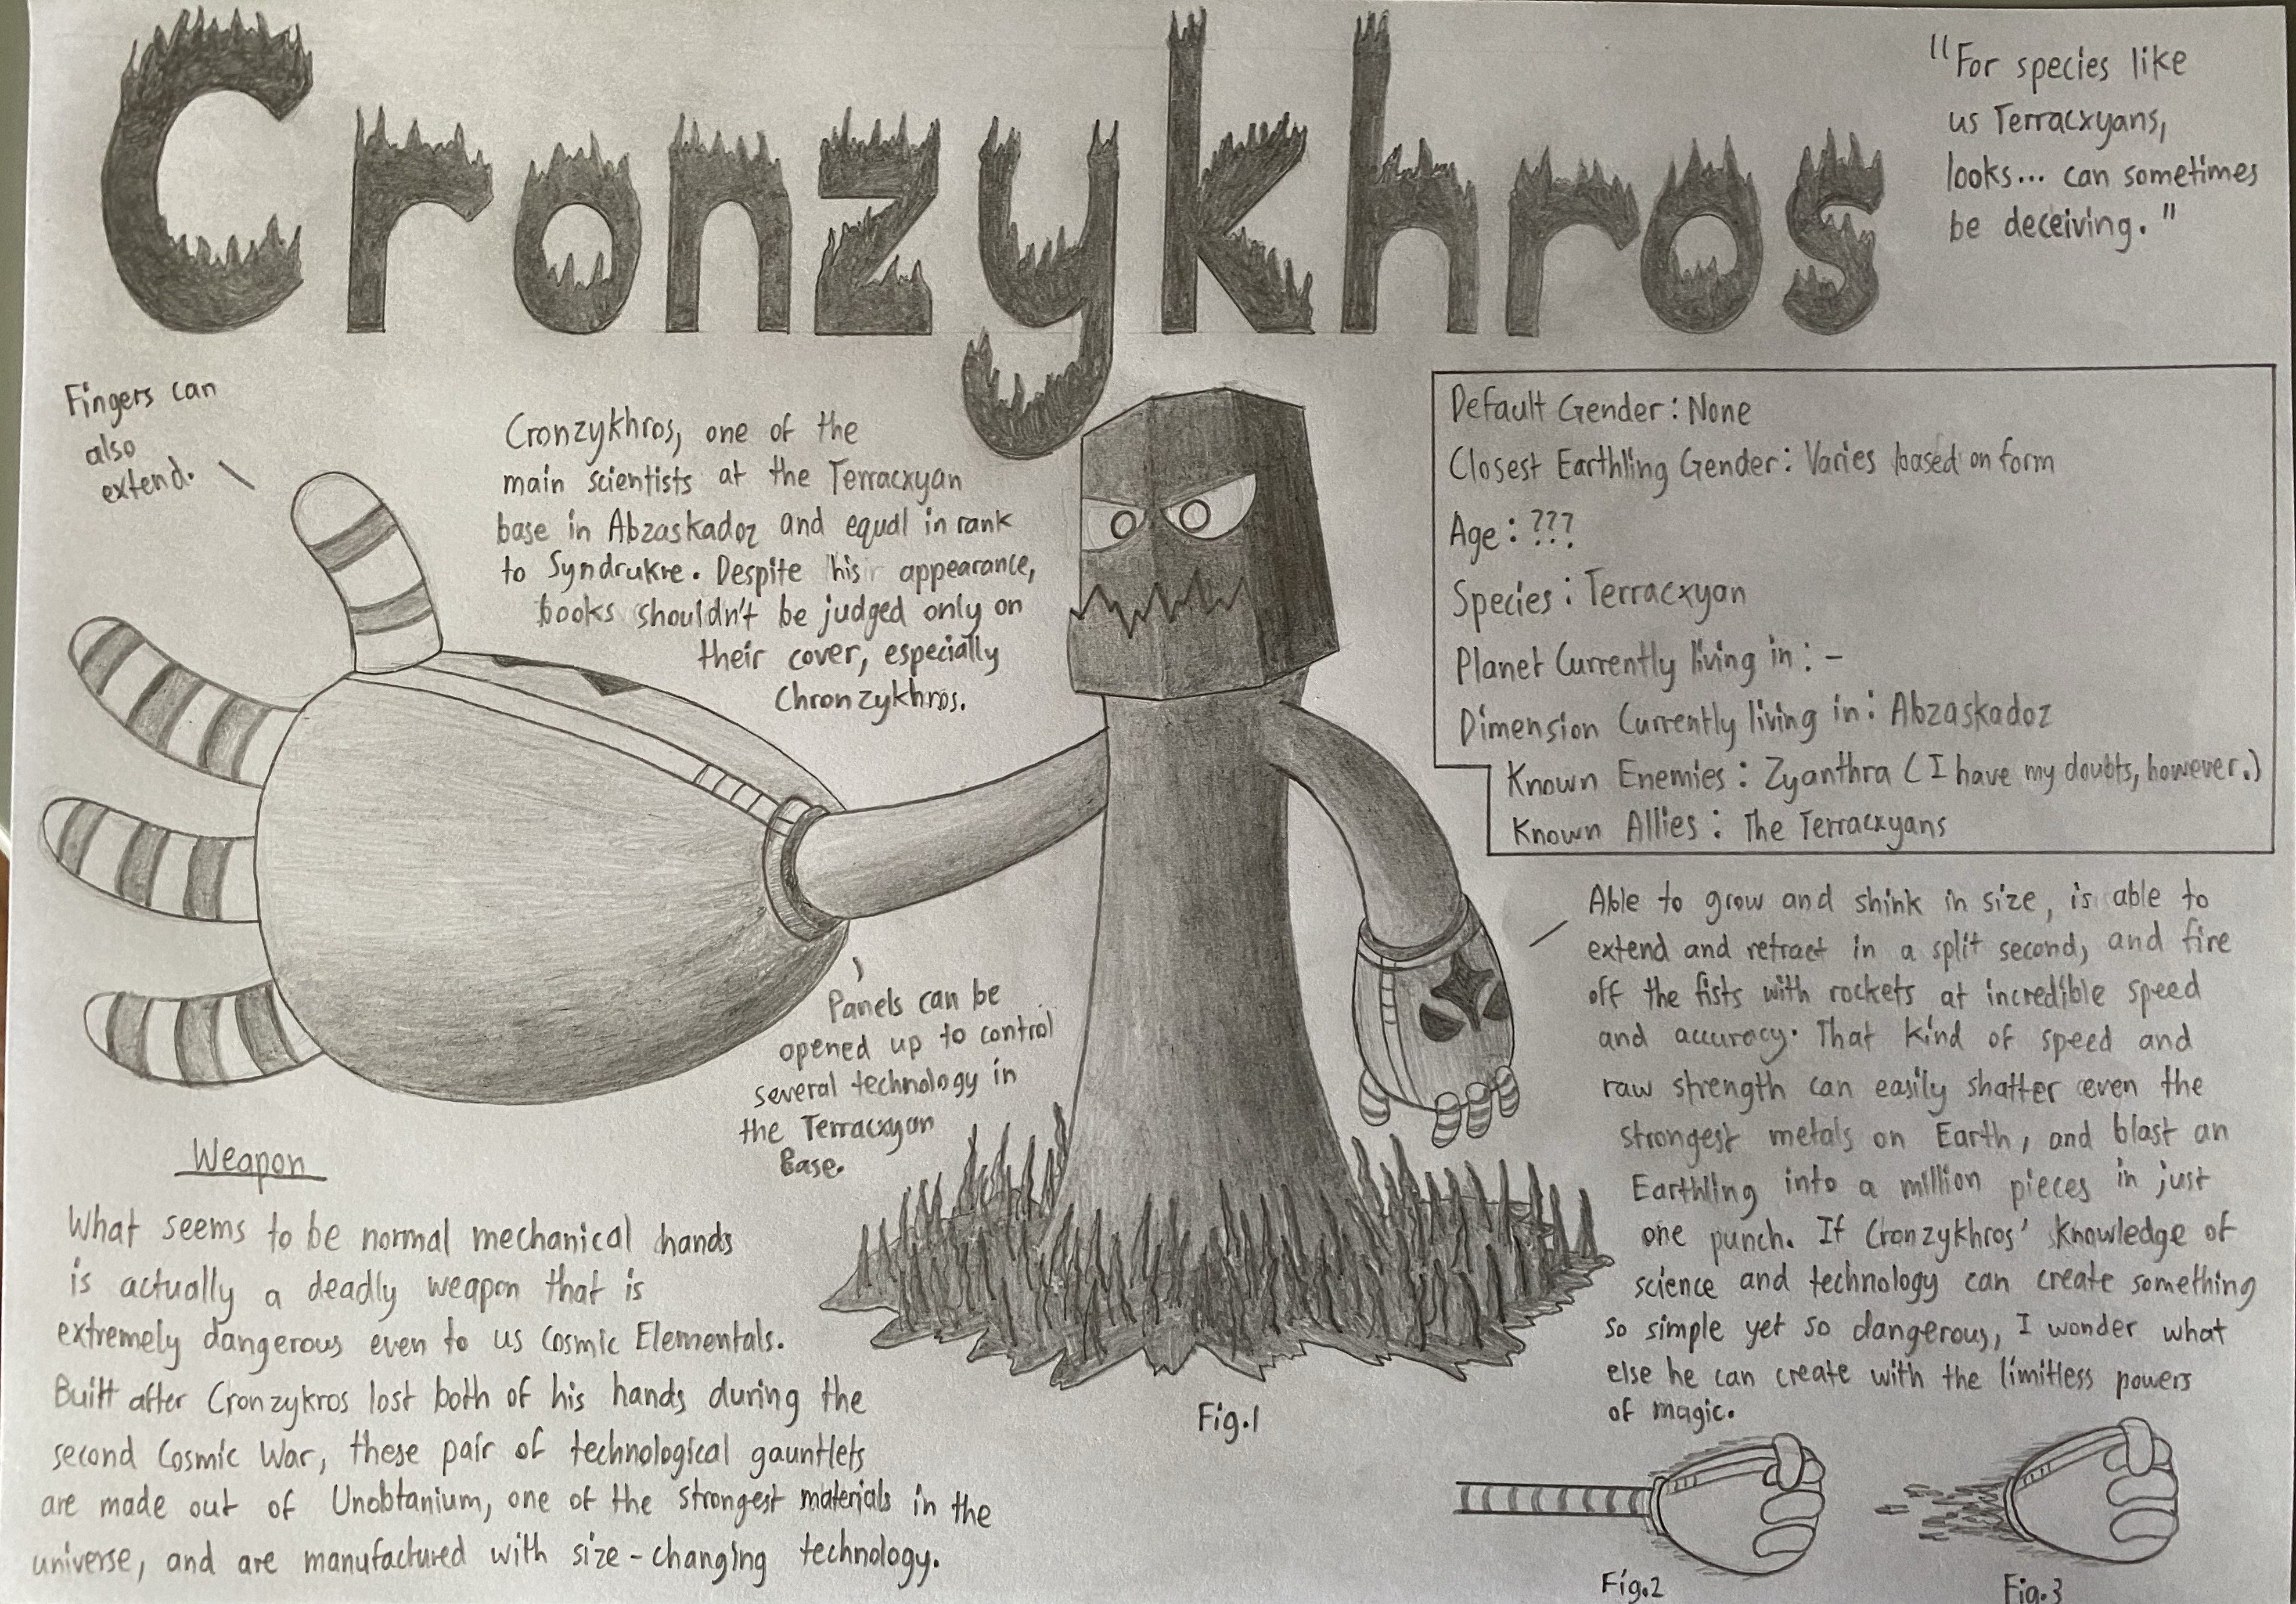 Cronzykhros
"For species like
us Terracxyans,
looks... can sometimes
be deceiving."
Fingers can
also
extend.
Cronzykhros, one of the
main scientists at the Terracxyan
base in Abzaskadoz and equal in rank
to Syndrukre. Despite his appearance,
books shouldn't be judged only on
their cover, especially
Chronzykhros.
Default Gender: None
Closest Earthling Gender: Varies based on form
Age: ???
Species: Terracxyan
Planet Currently living in: -
Dimension Currently living in: Abzaskadoz
Known Enemies: Zyanthra (I have my doubts, however.)
Known Allies: The Terracxyans
Able to grow and shink in size, is able to
extend and retract in a split second, and fire
off the fists with rockets at incredible speed
and accuracy. That kind of speed and
raw strength can easily shatter even the
strongest metals on Earth, and blast an
Earthling into a million pieces in just
one punch. If Cronzykhros' knowledge of
science and technology can create something
so simple yet so dangerous, I wonder what
else he can create with the limitless powers
of magic.
Panels can be
opened up to control
several technology in
the Terracxyan
Base.
Weapon
What seems to be normal mechanical hands
is actually a deadly weapon that is
extremely dangerous even to us Cosmic Elementals.
Built after Cronzykros lost both of his hands during the
second Cosmic War, these pair of technological gauntlets
are made out of Unobtanium, one of the strongest materials in the
universe, and are manufactured with size-changing technology.
Fig.1
Fig.2
Fig.3